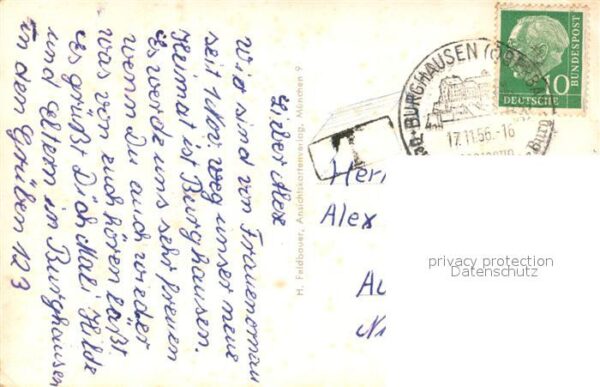 Lieber Alex
Wir sind von Frauenornau
seit 1 Nov. weg unser neue
Heimat ist Burghausen.
es würde uns sehr freuen
wenn Du auch wieder
was von euch hören läßt
es grüßt Dich Mali Hilde
und Eltern in Burghausen
In den Grüben 123
H. Feldbauer, Ansichtskartenverlag, München 9
BURGHAUSEN
17.11.56.-16
10
DEUTSCHE
BUNDESPOST
T
Herr
Alex
privacy protection
Datenschutz